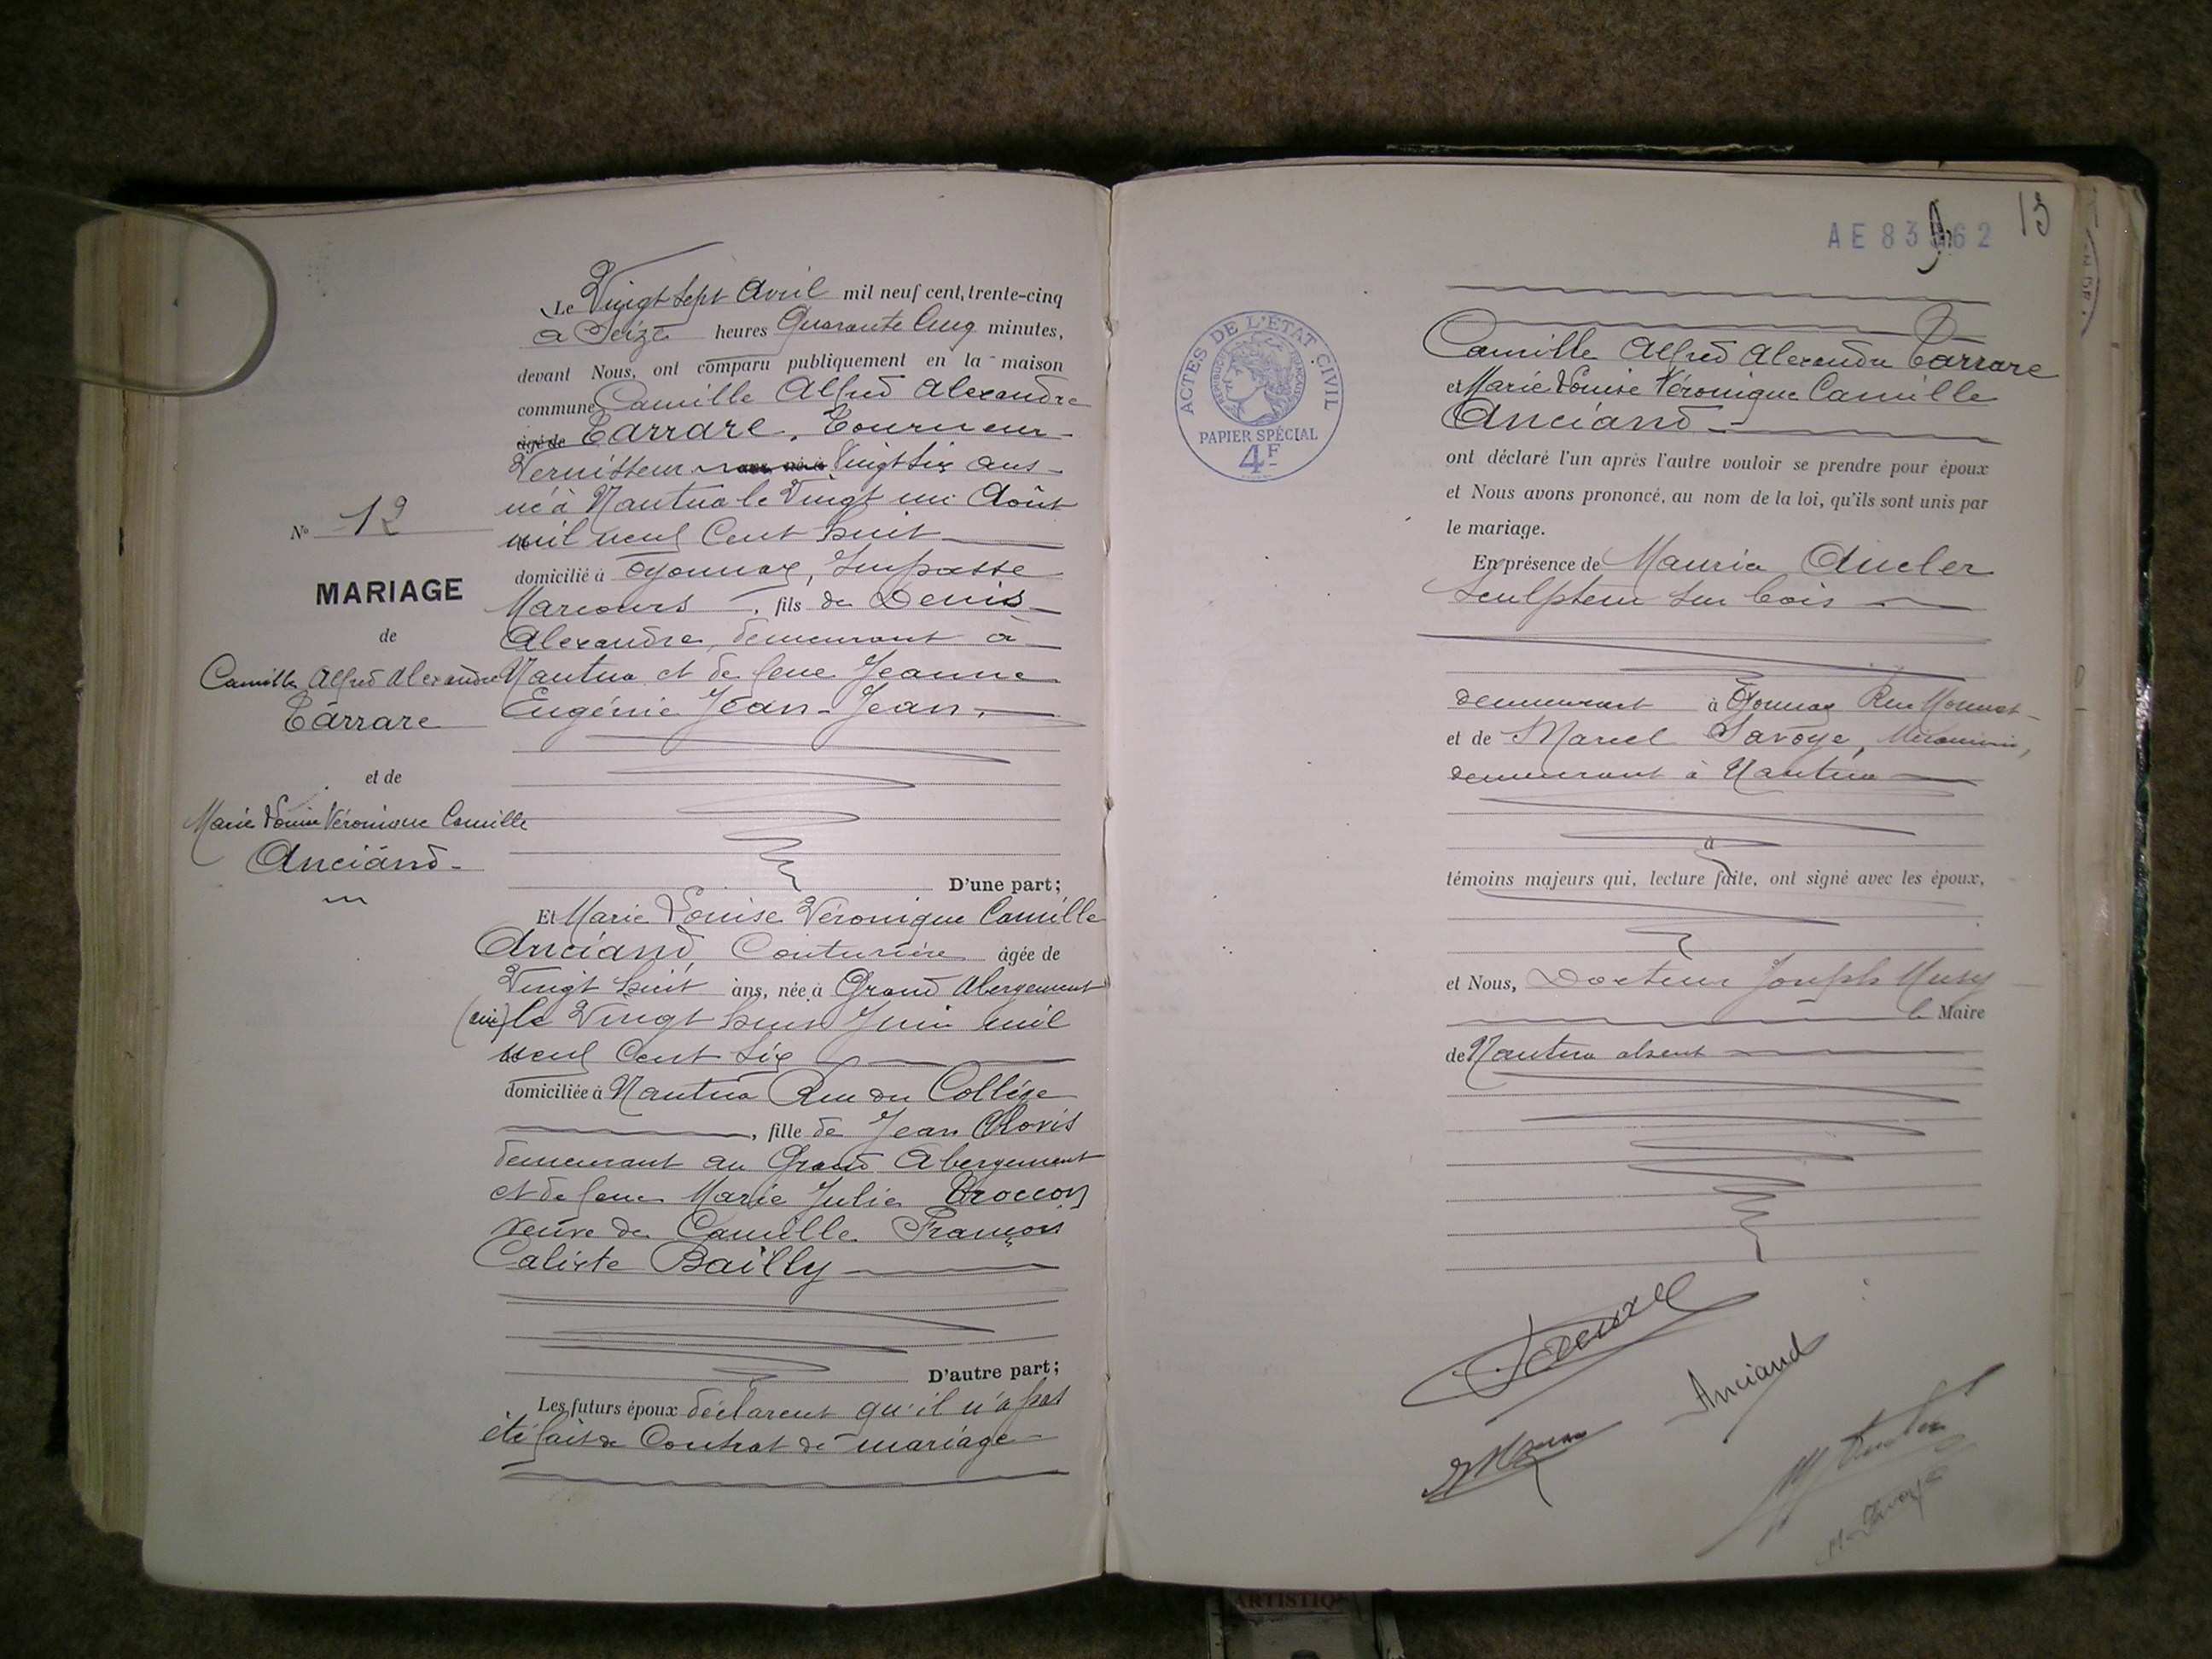 N° 12
MARIAGE
de
Camille Alfred Alexandre
Tarrare
et de
Marie Louise Véronique Camille
Anciand
Le Vingt sept Avril mil neuf cent, trente-cinq
à Seize heures Quarante Cinq minutes,
devant Nous, ont comparu publiquement en la maison
commune Camille Alfred Alexandre
âgé de Tarrare, Tourneur
Vernisseur ans, né à Vingt six ans
né à Nantua le Vingt un Août
mil neuf Cent huit
domicilié à Oyonnax, Impasse
Marcours, fils de Denis
Alexandre, demeurant à
Nantua et de feue Jeanne
Eugénie Jean-Jean,
D'une part;
Et Marie Louise Véronique Camille
Anciand, Couturière âgée de
Vingt huit ans, née à Grand Abergement
(Ain) le Vingt huit Juin mil
neuf Cent Six
domiciliée à Nantua Rue du Collège
, fille de Jean Clovis
demeurant au Grand Abergement
et de feue Marie Julie Troccon
veuve de Camille François
Calixte Bailly
D'autre part;
Les futurs époux déclarent qu'il n'a pas
été fait de Contrat de mariage
AE 83 62
13
ACTES DE L'ÉTAT CIVIL
RÉPUBLIQUE FRANÇAISE
PAPIER SPÉCIAL
4F
Camille Alfred Alexandre Tarrare
et Marie Louise Véronique Camille
Anciand
ont déclaré l'un après l'autre vouloir se prendre pour époux
et Nous avons prononcé, au nom de la loi, qu'ils sont unis par
le mariage.
En présence de Maurice Ancler
Sculpteur sur bois
demeurant à Oyonnax Rue
et de Marcel Savoye, Mécanicien,
demeurant à Nantua
témoins majeurs qui, lecture faite, ont signé avec les époux,
et Nous, Docteur Joseph
le Maire
de Nantua absent
Tarrare
Anciand
M. Savoye
ARTISTIQ